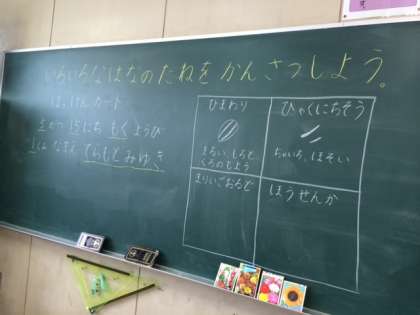 いろいろなはなのたねをかんさつしよう。
はっけんカード
15にち もくようび
なまえ てらもとみゆき
ひまわり
ひゃくにちそう
まるい、しろと、
くろのもよう
ちゃいろ、ほそい
まりいごおるど
ほうせんか